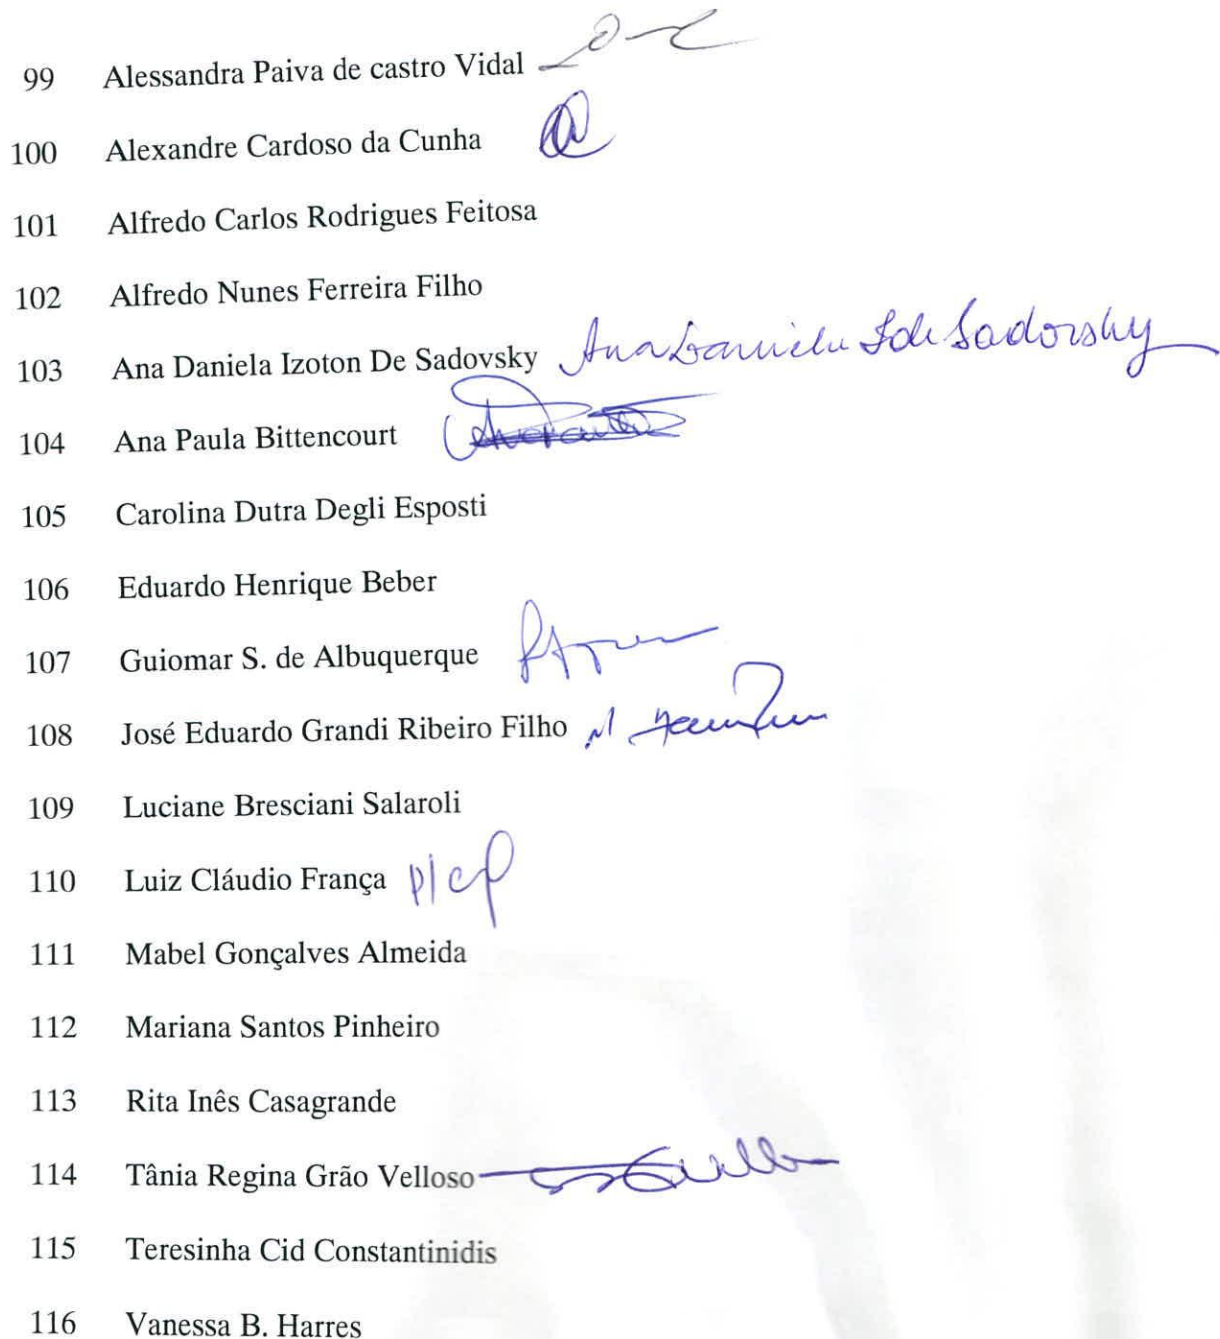 99 Alessandra Paiva de castro Vidal
100 Alexandre Cardoso da Cunha
101 Alfredo Carlos Rodrigues Feitosa
102 Alfredo Nunes Ferreira Filho
103 Ana Daniela Izoton De Sadovsky Ana Daniela I de Sadovsky
104 Ana Paula Bittencourt
105 Carolina Dutra Degli Esposti
106 Eduardo Henrique Beber
107 Guiomar S. de Albuquerque
108 José Eduardo Grandi Ribeiro Filho
109 Luciane Bresciani Salaroli
110 Luiz Cláudio França
111 Mabel Gonçalves Almeida
112 Mariana Santos Pinheiro
113 Rita Inês Casagrande
114 Tânia Regina Grão Velloso
115 Teresinha Cid Constantinidis
116 Vanessa B. Harres